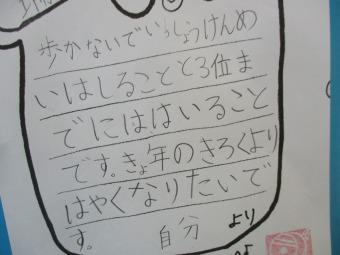 歩かないでいっしょうけんめ
いはしることと3位ま
でにははいること
です。きょ年のきろくより
はやくなりたいで
す。 自分 より